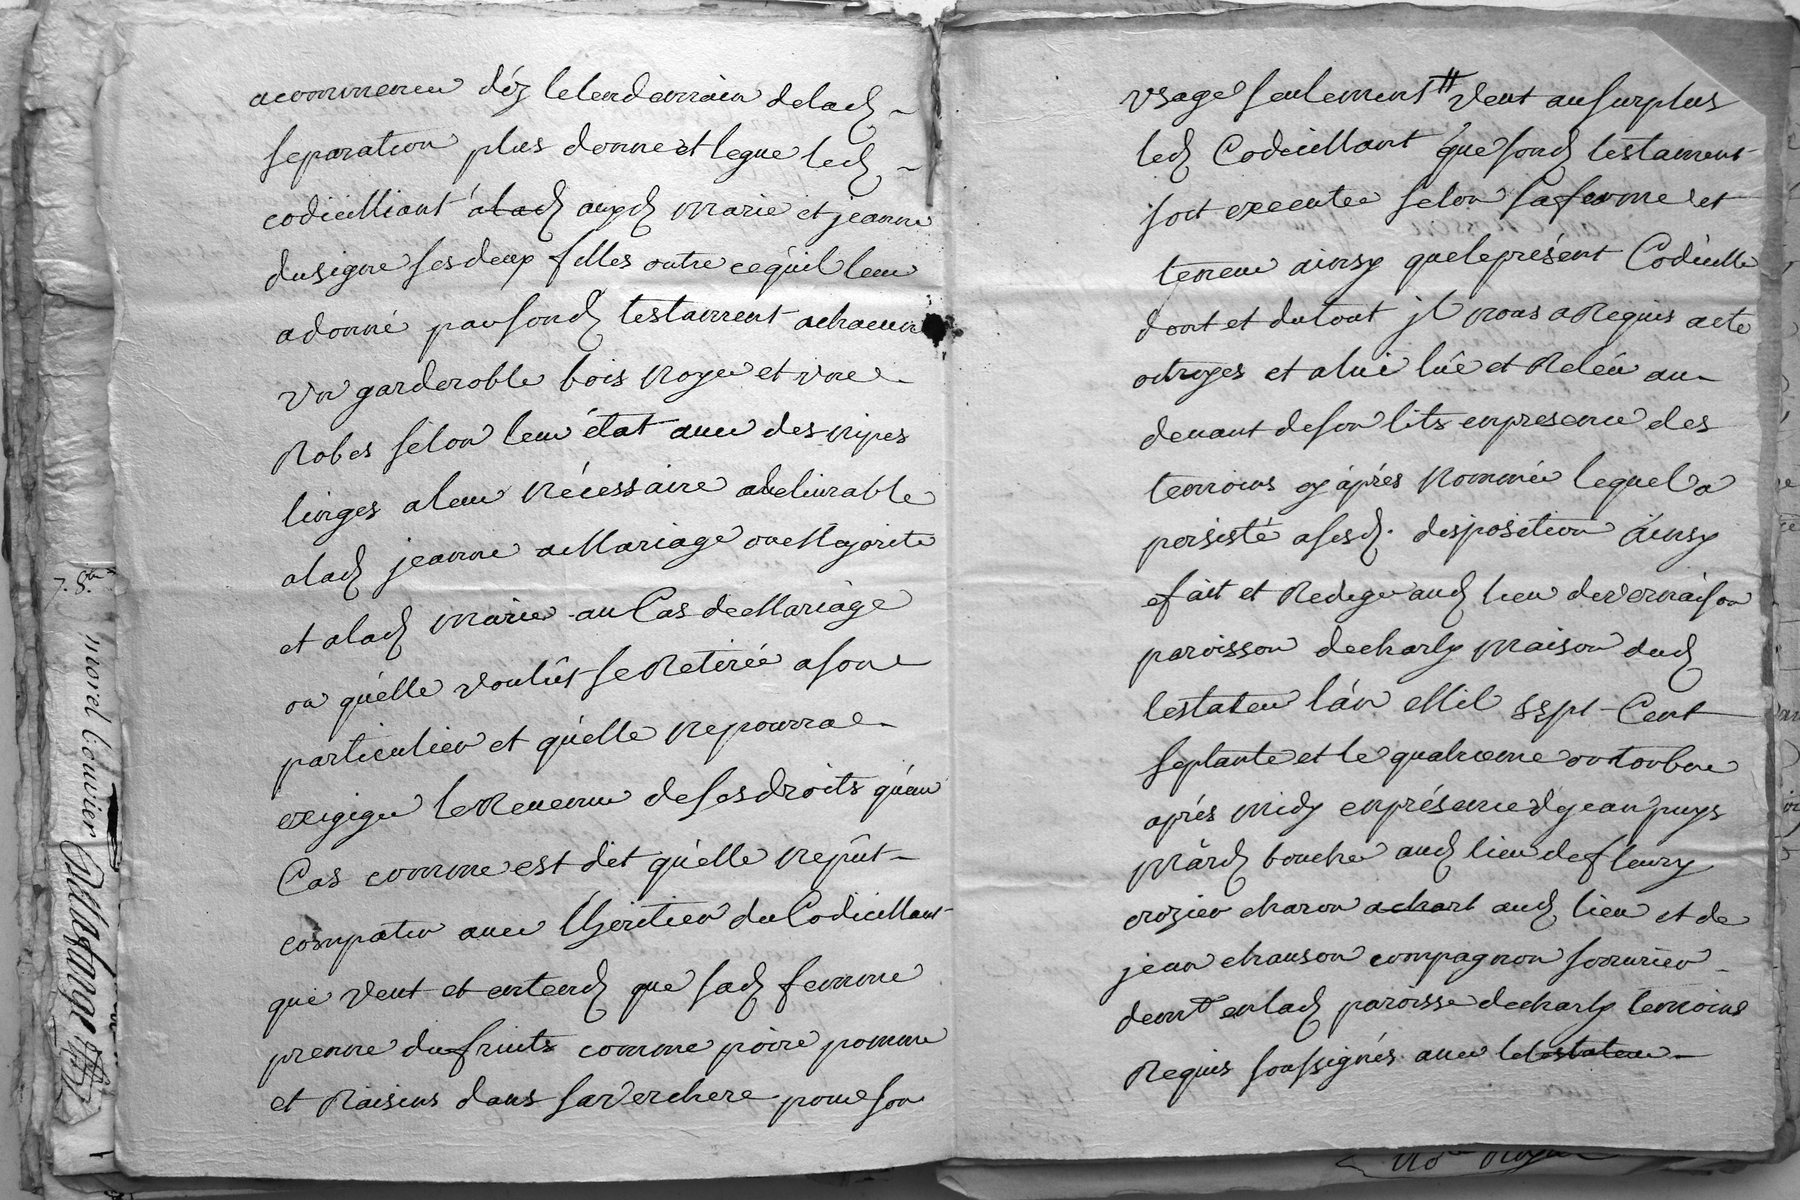 acommencer déz lelendemain delad
separation plus donne et legue led
codicilliant álad auxd marie et jeanne
dusigne ses deux filles outre cequil leur
adonné par sond testament achacune
un garderoble bois noyer et une
Robes selon leur état avec des nipes
linges aleur nécessaire adelivrable
alad jeanne a Mariage ou Majorité
et alad marie au Cas de Mariage
ou qu'elle voulût se Retirée a son
particulier et qu'elle ne pourra
exigiger le Revenue de ses droits qu'au
Cas comme est dit qu'elle ne pût
compatir avec Lheritier du Codicillant
qui veut et entend que sad femme
prenne du fruits comme poire pomme
et Raisins dans sa verchere pour son
usage seulement veut au surplus
led Codicillant que sond testament
soit executée selon sa forme et
teneur ainsy que le présent Codicille
dont et du tout jl nous a Requis acte
octroyes et a lui lûe et Releû au
devant de son lits en presence des
temoins cy áprés Nommée lequel a
persisté a sesd. disposition ainsy
fait et Redige aud lieu de vernaison
paroisson de charly maison dud
testateur l'an Mil sept Cent
septante et le quatrieme octoubre
aprés midy en présence de jean puys
mârd boucher aud lieu de fleury
crozier charon achart aud lieu et de
jean chanson compagnon serrurier
demt en lad paroisse de charly temoins
Requis soussignés avec le testateur
7. 8.bre
morel Couvier